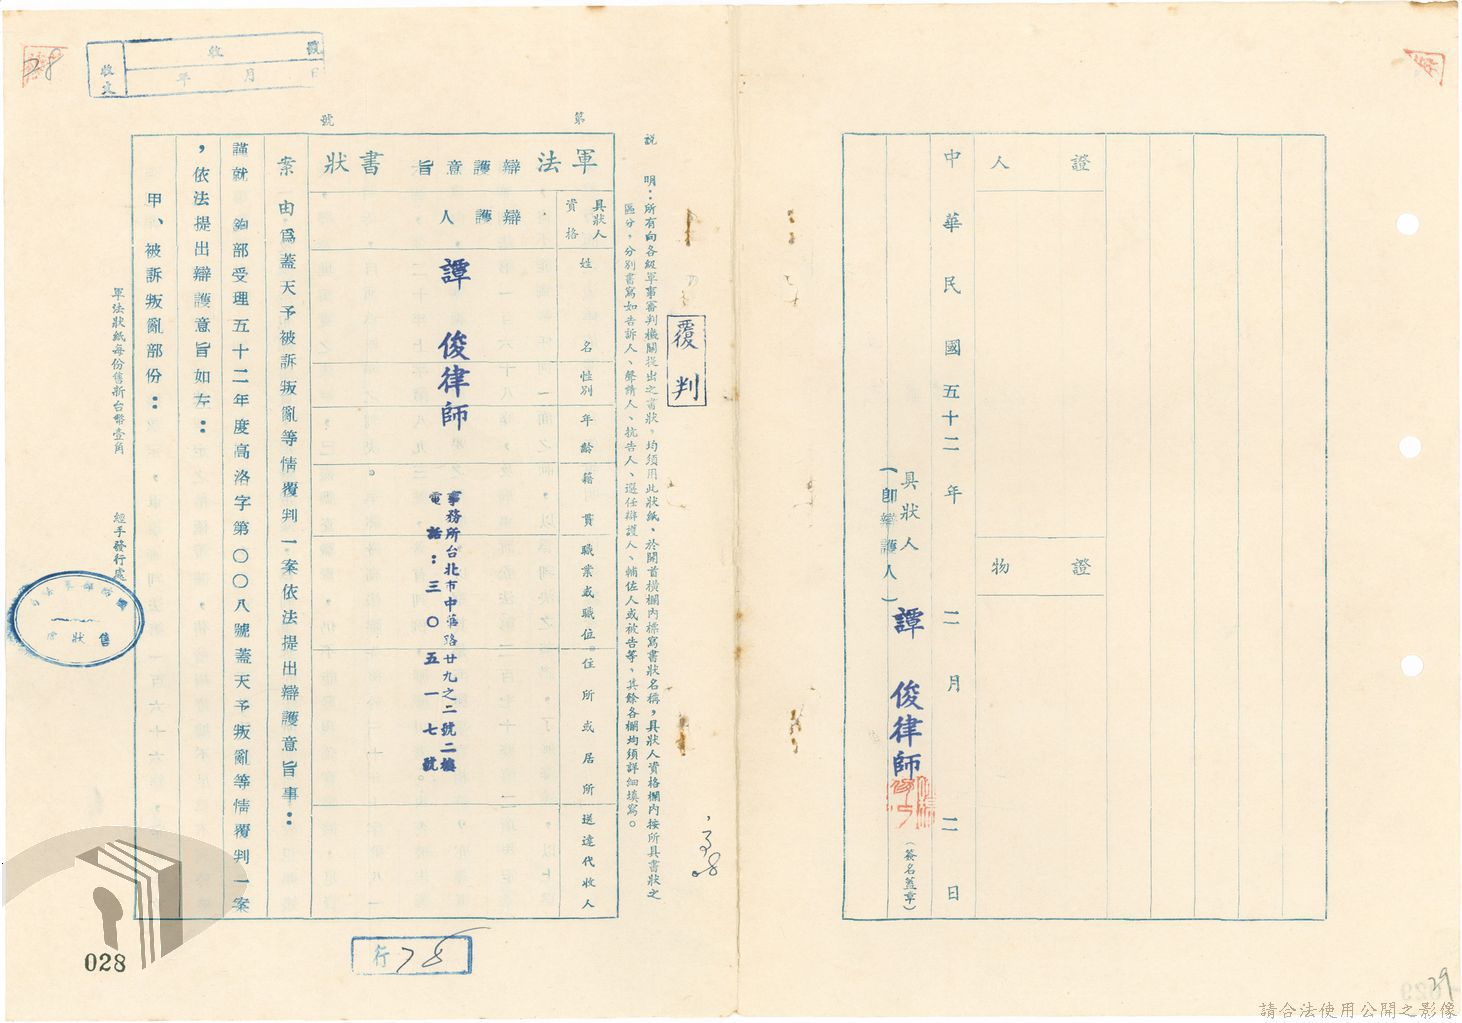 證人
證物
中華民國五十二年二月二日
具狀人
(即辯護人)
譚俊律師
(簽名蓋章)
說明：所有向各級軍事審判機關提出之書狀，均須用此狀紙，於開首橫欄內標寫書狀名稱，具狀人資格欄內按所具書狀之
區分，分別書寫如告訴人、聲請人、抗告人、選任辯護人、輔佐人或被告等，其餘各欄均須詳細填寫。
覆判
第
號
軍法辯護意旨書狀
具狀人
資格
姓名
性別
年齡
籍貫
職業或職位
住所或居所
送達代收人
辯護人
譚俊律師
事務所台北市中華路廿九之二號二樓
電話：三〇五一七號
案由為蓋天予被訴叛亂等情覆判一案依法提出辯護意旨事：
謹就 鈞部受理五十二年度高洛字第〇〇八號蓋天予叛亂等情覆判一案
，依法提出辯護意旨如左：
甲、被訴叛亂部份：
軍法狀紙每份售新台幣壹角
經手發行處
售狀處
收文
收
號
年月日
行78
28
028
29
請合法使用公開之影像